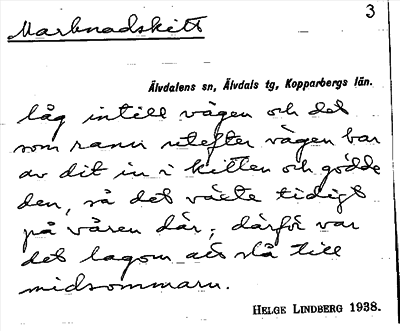 Marknadskitt
3
Älvdalens sn, Älvdals tg, Kopparbergs län.
låg intill vägen och det
som rann utefter vägen bar
av dit in i kitten och gödde
den, så det växte tidigt
på våren där; därför var
det lagom att slå till
midsommarn.
Helge Lindberg 1938.